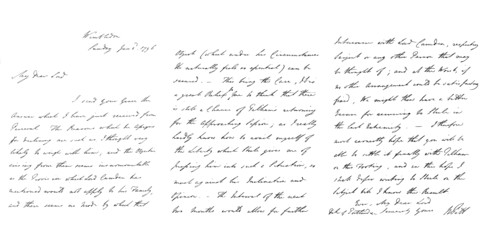 Wimbledon
Sunday
My Dear Lord
I send you here the
answer which I have just received from
Perceval. The Reasons which he assigns
for declining are such as I thought very
likely to weigh with him, and the
coming from them seems insurmountable
as the Provision which Lord Camden has
mentioned would not apply to his Family,
and there seems no mode by which that
Object (which under his Circumstances
he naturally feels so essential) can be
secured. This being the Case, It is
a great Relief to me to think that there
is still a Chance of Pelham's returning
for the approaching Session, as I really
hardly know how to avail myself of
the
pressing him into such a Situation, so
much against his Inclination and
Opinion. The Interval of the next
two Months would allow for further
Intercourse with Lord Camden, respecting
Sargent or any other Person that may
be thought of; and at the Worst, if
no other arrangement could be satisfactorily
fixed, We might then have a better
Excuse for recurring to Steele in
the last Extremity. I therefore
most earnestly hope that you will be
able to settle it finally with Pelham
on the Footing, and in this hope I
shall defer writing to Steele on the
Subject till I know the Result
I am, My Dear Lord
Sincerely Yours
W Pitt